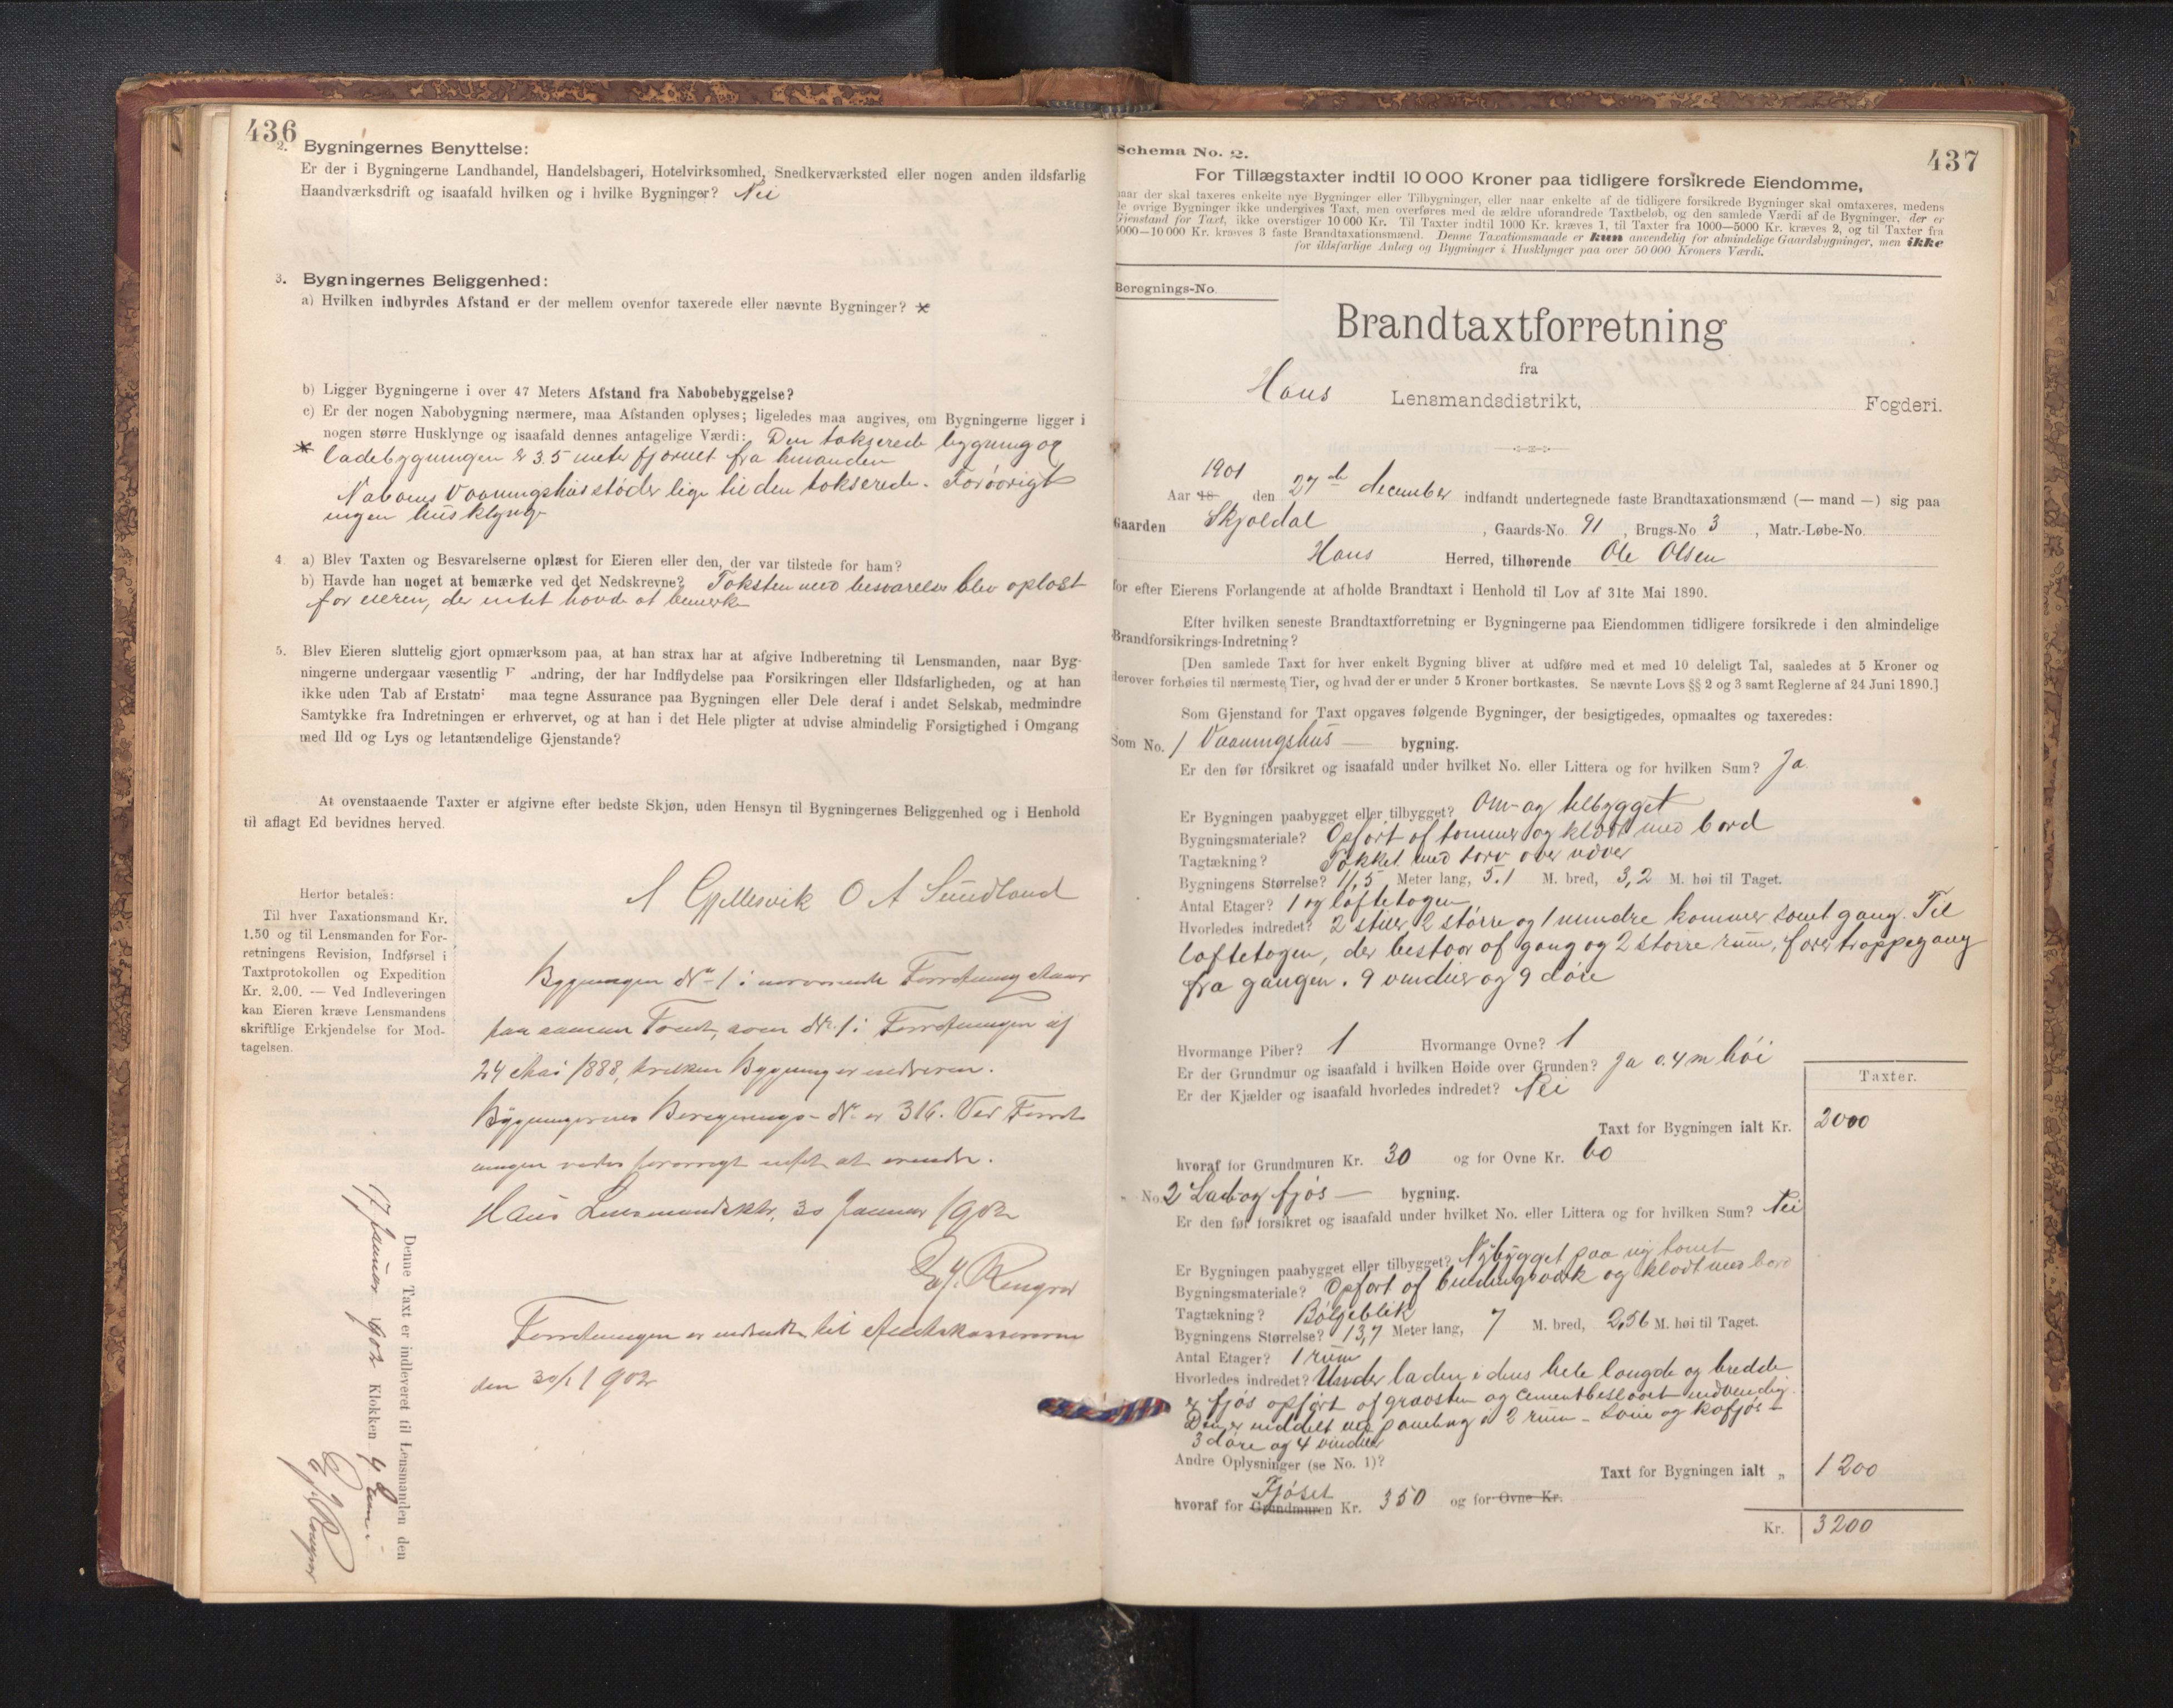 436
2. Bygningernes Benyttelse:
Er der i Bygningerne Landhandel, Handelsbageri, Hotelvirksomhed, Snedkerværksted eller nogen anden ildsfarlig
Haandværksdrift og isaafald hvilken og i hvilke Bygninger? Nei
3. Bygningernes Beliggenhed:
a) Hvilken indbyrdes Afstand er der mellem ovenfor taxerede eller nævnte Bygninger? *
b) Ligger Bygningerne i over 47 Meters Afstand fra Nabobebyggelse?
c) Er der nogen Nabobygning nærmere, maa Afstanden oplyses; ligeledes maa angives, om Bygningerne ligger i
nogen større Husklynge og isaafald dennes antagelige Værdi: Den takserede bygning og
* ladebygningen er 3.5 meter fjærnet fra hinanden
Naboens Vaaningshus støder lige til den takserede. Forøvrigt
ingen husklynge
4. a) Blev Taxten og Besvarelserne oplæst for Eieren eller den, der var tilstede for ham?
b) Havde han noget at bemærke ved det Nedskrevne? Taksten med besvarelse blev oplæst
for eieren, der intet havde at bemerke
5. Blev Eieren sluttelig gjort opmærksom paa, at han strax har at afgive Indberetning til Lensmanden, naar Byg-
ningerne undergaar væsentlig F andring, der har Indflydelse paa Forsikringen eller Ildsfarligheden, og at han
ikke uden Tab af Erstatn maa tegne Assurance paa Bygningen eller Dele deraf i andet Selskab, medmindre
Samtykke fra Indretningen er erhvervet, og at han i det Hele pligter at udvise almindelig Forsigtighed i Omgang
med Ild og Lys og letantændelige Gjenstande?
At ovenstaaende Taxter er afgivne efter bedste Skjøn, uden Hensyn til Bygningernes Beliggenhed og i Henhold
til aflagt Ed bevidnes herved.
A Gjellesvik O A Sundland
Herfor betales:
Til hver Taxationsmand Kr.
1.50 og til Lensmanden for For-
retningens Revision, Indførsel i
Taxtprotokollen og Expedition
Kr. 2.00. — Ved Indleveringen
kan Eieren kræve Lensmandens
skriftlige Erkjendelse for Mod-
tagelsen.
Bygningen No 1 i nærværende Forretning staar
paa samme Tomt, som No. 1 i Forretningen af
24 Mai 1888, hvilken Bygning er nedreven.
Bygningernes Beregnings-No er 316. Ved Forret-
ningen vides forøvrigt intet at erindre.
Haus Lensmandsktr. 30 Januar 1902
Forretningen er indsendt til Amtskassereren
den 30/1 1902
Denne Taxt er indleveret til Lensmanden den
17 Januar 1902 Klokken 4
437
Schema No. 2.
For Tillægstaxter indtil 10 000 Kroner paa tidligere forsikrede Eiendomme,
naar der skal taxeres enkelte nye Bygninger eller Tilbygninger, eller naar enkelte af de tidligere forsikrede Bygninger skal omtaxeres, medens
de øvrige Bygninger ikke undergives Taxt, men overføres med de ældre uforandrede Taxtbeløb, og den samlede Værdi af de Bygninger, der er
Gjenstand for Taxt, ikke overstiger 10 000 Kr. Til Taxter indtil 1000 Kr. kræves 1, til Taxter fra 1000—5000 Kr. kræves 2, og til Taxter fra
5000—10 000 Kr. kræves 3 faste Brandtaxationsmænd. Denne Taxationsmaade er kun anvendelig for almindelige Gaardsbygninger, men ikke
for ildsfarlige Anlæg og Bygninger i Husklynger paa over 50 000 Kroners Værdi.
Beregnings-No.
Brandtaxtforretning
fra
Haus Lensmandsdistrikt, Fogderi.
Aar 18 1901 den 27de december indfandt undertegnede faste Brandtaxationsmænd (— mand —) sig paa
Gaarden Skjoldal, Gaards-No. 91, Brugs-No 3, Matr.-Løbe-No.
Haus Herred, tilhørende Ole Olsen
for efter Eierens Forlangende at afholde Brandtaxt i Henhold til Lov af 31te Mai 1890.
Efter hvilken seneste Brandtaxtforretning er Bygningerne paa Eiendommen tidligere forsikrede i den almindelige
Brandforsikrings-Indretning?
[Den samlede Taxt for hver enkelt Bygning bliver at udføre med et med 10 deleligt Tal, saaledes at 5 Kroner og
derover forhøies til nærmeste Tier, og hvad der er under 5 Kroner bortkastes. Se nævnte Lovs §§ 2 og 3 samt Reglerne af 24 Juni 1890.]
Som Gjenstand for Taxt opgaves følgende Bygninger, der besigtigedes, opmaaltes og taxeredes:
Som No. 1 Vaaningshus — bygning.
Er den før forsikret og isaafald under hvilket No. eller Littera og for hvilken Sum? Ja.
Er Bygningen paabygget eller tilbygget? Om- og tilbygget
Bygningsmateriale? Opført af tømmer og klædt med bord
Tagtækning? Tækket med torv over næver
Bygningens Størrelse? 11,5 Meter lang, 5.1 M. bred, 3,2 M. høi til Taget.
Antal Etager? 1 og loftetagen
Hvorledes indredet? 2 stuer 2 større og 1 mindre kammer samt gang. Til
loftetagen, der bestaar af gang og 2 større rum, fører trappegang
fra gangen. 9 vinduer og 9 døre
Hvormange Piber? 1 Hvormange Ovne? 1
Er der Grundmur og isaafald i hvilken Høide over Grunden? Ja 0.4 m høi
Er der Kjælder og isaafald hvorledes indredet? Nei
Taxter.
Taxt for Bygningen ialt Kr. 2000
hvoraf for Grundmuren Kr. 30 og for Ovne Kr. 60
" No. 2 Lade og fjøs — bygning.
Er den før forsikret og isaafald under hvilket No. eller Littera og for hvilken Sum? Nei
Er Bygningen paabygget eller tilbygget? Nybygget paa ny tomt
Bygningsmateriale? Opført af bindingsværk og klædt med bord
Tagtækning? Bølgeblik
Bygningens Størrelse? 13,7 Meter lang, 7 M. bred, 2,56 M. høi til Taget.
Antal Etager? 1 rum
Hvorledes indredet? Under laden i dens hele længde og bredde
er fjøs opført af graasten og cementbeslaaet indvendig.
Den er inddelt ved paneling i 2 rum - saue og kofjøs -
3 døre og 4 vinduer
Andre Oplysninger (se No. 1)? Taxt for Bygningen ialt „ 1200
hvoraf for Grundmuren Fjøset Kr. 350 og for Ovne Kr.
Kr. 3200